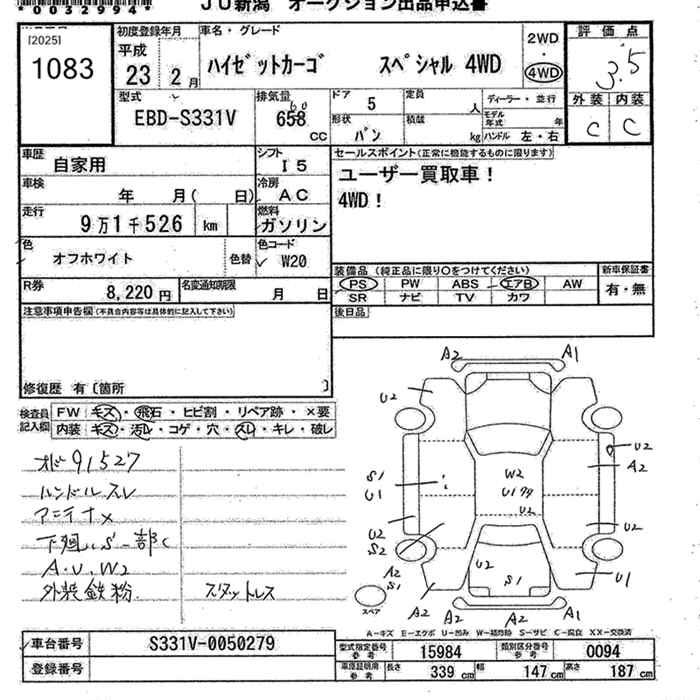 *0032994*
JU新潟 オークション出品申込書
[2025]
1083
初度登録年月
平成
23年 2月
車名・グレード
ハイゼットカーゴ スペシャル 4WD
2WD
・
4WD
評価点
3.5
外装 内装
C C
型式
EBD-S331V
排気量
60
658
CC
ドア 5
形状 バン
定員 人
積載 kg
ディーラー・並行
モデル年式 年
ハンドル 左・右
車歴
自家用
シフト
I5
車検
年 月( 日)
冷房
AC
走行
9万1千526 km
燃料
ガソリン
色
オフホワイト
色替
色コード
W20
R券
8,220 円
名変通知期限
月 日
セールスポイント(正常に機能するものに限ります)
ユーザー買取車!
4WD!
装備品 (純正品に限り○をつけてください)
PS PW ABS エアB AW
SR ナビ TV カワ
新車保証書
有・無
後日品
注意事項申告欄(不具合内容等は具体的に記入して下さい)
修復歴 有〔箇所 〕
検査員
記入欄
FW キズ・飛石・ヒビ割・リペア跡・×要
内装 キズ・汚れ・コゲ・穴・スレ・キレ・破レ
オド91527
ハンドルスレ
アンテナ×
下廻り、S一部C
A.U.W2
外装鉄粉
スタットレス
A2 A1
U2
U2
A2
S1
U1
W2
U1
U2
U2
S2
U2
A2
S1
U2
S1
U1
A2
A2
A2
A2
スペア
A-キズ E-エクボ U-凹み W-補修跡 S-サビ C-腐食 XX-交換済
車台番号 S331V-0050279
登録番号
型式指定番号
参考
15984
類別区分番号
参考
0094
車庫証明用
参考
長さ 339 cm 幅 147 cm 高さ 187 cm